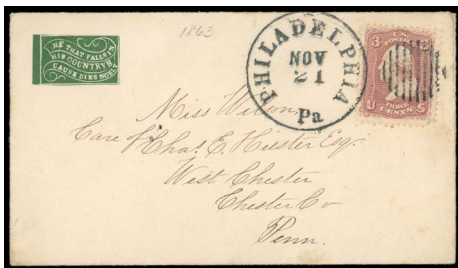 HE THAT FALLS IN
HIS COUNTRY'S
CAUSE DIES NOBLY
1863
PHILADELPHIA
NOV
21
Pa
3 3
U.S. POSTAGE
U THREE CENTS S
Miss Wilson
Care of Chas. E. Hiester Esq.
West Chester
Chester Co
Penn.